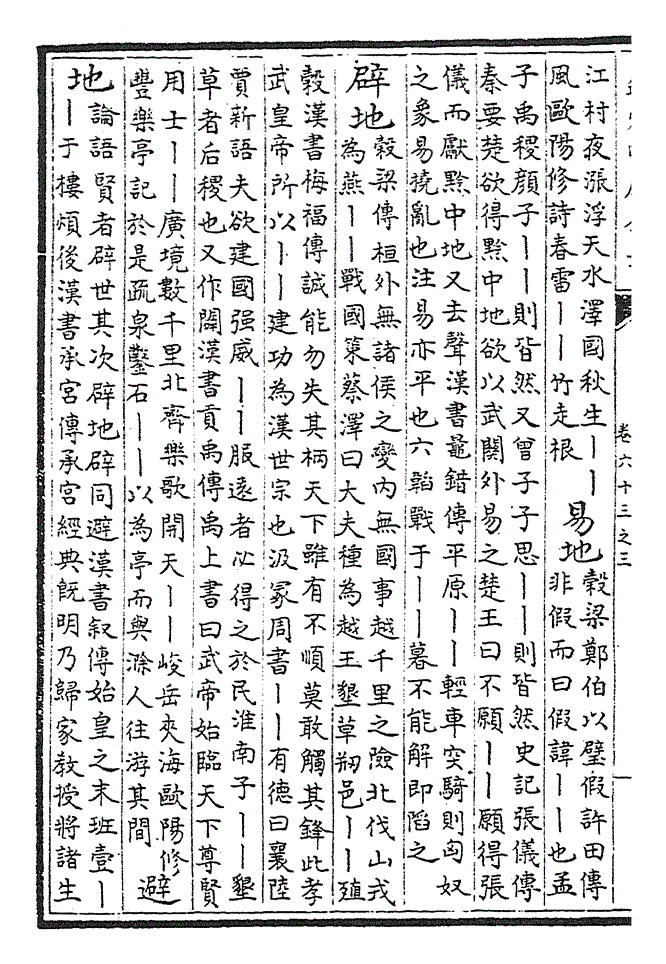 江村夜漲浮天水澤國秋生丨丨
風歐陽修詩春雷丨丨竹走根
易地
榖梁鄭伯以璧假許田傳
非假而曰假諱丨丨也孟
子禹稷顔子丨丨則皆然又曾子子思丨丨則皆然史記張儀傳
秦要楚欲得黔中地欲以武關外易之楚王曰不願丨丨願得張
儀而獻黔中地又去聲漢書鼂錯傳平原丨丨輕車突騎則匈奴
之衆易撓亂也注易亦平也六韜戰于丨丨暮不能解即䧟之
辟地
榖梁傳桓外無諸侯之變内無國事越千里之險北伐山戎
為燕丨丨戰國策蔡澤曰大夫種為越王墾草剏邑丨丨殖
榖漢書梅福傳誠能勿失其柄天下雖有不順莫敢觸其鋒此孝
武皇帝所以丨丨建功為漢世宗也汲冢周書丨丨有德曰襄陸
賈新語夫欲建國强威丨丨服逺者必得之於民淮南子丨丨墾
草者后稷也又作闢漢書貢禹傳禹上書曰武帝始臨天下尊賢
用士丨丨廣境數千里北齊樂歌開天丨丨峻岳夾海歐陽修
豐樂亭記於是疏泉鑿石丨丨以為亭而與滁人往游其間
避
地
論語賢者辟世其次辟地辟同避漢書叙傳始皇之末班壹丨
丨于樓煩後漢書承宫傳承宫經典既明乃歸家教授將諸生
卷六十三之三